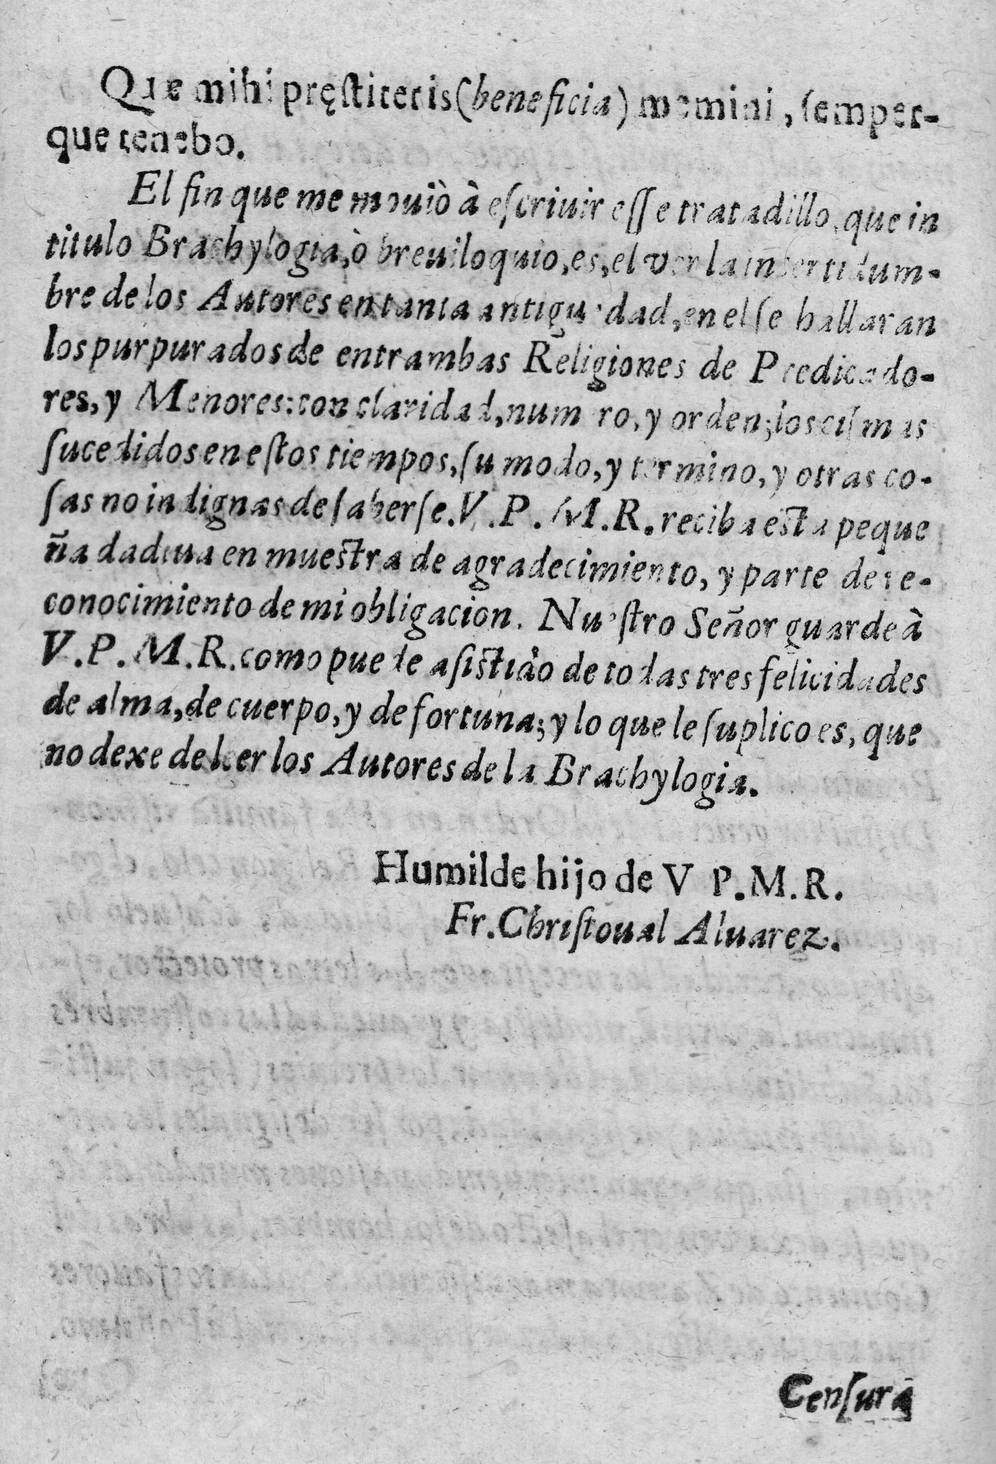 Que mihi pręſtitetis (beneficia) memini, ſemper-
que tenebo.
El fin que me mouiò à eſcriuir eſſe tratadillo, que in
titulo Brachylogia, ò breuiloquio, es, el ver la incertidum-
bre de los Autores en tanta antiguedad, en el ſe hallaran
los purpurados de entrambas Religiones de Predicado-
res, y Menores: con claridad, numero, y orden; los ciſmas
ſucedidos en eſtos tiempos, ſu modo, y termino, y otras co-
ſas no indignas de ſaberſe. V. P. M. R. reciba eſta peque
ña dadiua en mueſtra de agradecimiento, y parte de re-
conocimiento de mi obligacion. Nueſtro Señor guarde à
V. P. M. R. como puede aſiſtido de todas tres felicidades
de alma, de cuerpo, y de fortuna; y lo que le ſuplico es, que
no dexe de leer los Autores de la Brachylogia.
Humilde hijo de V P. M. R.
Fr. Chriſtoual Aluarez.
Cenſura